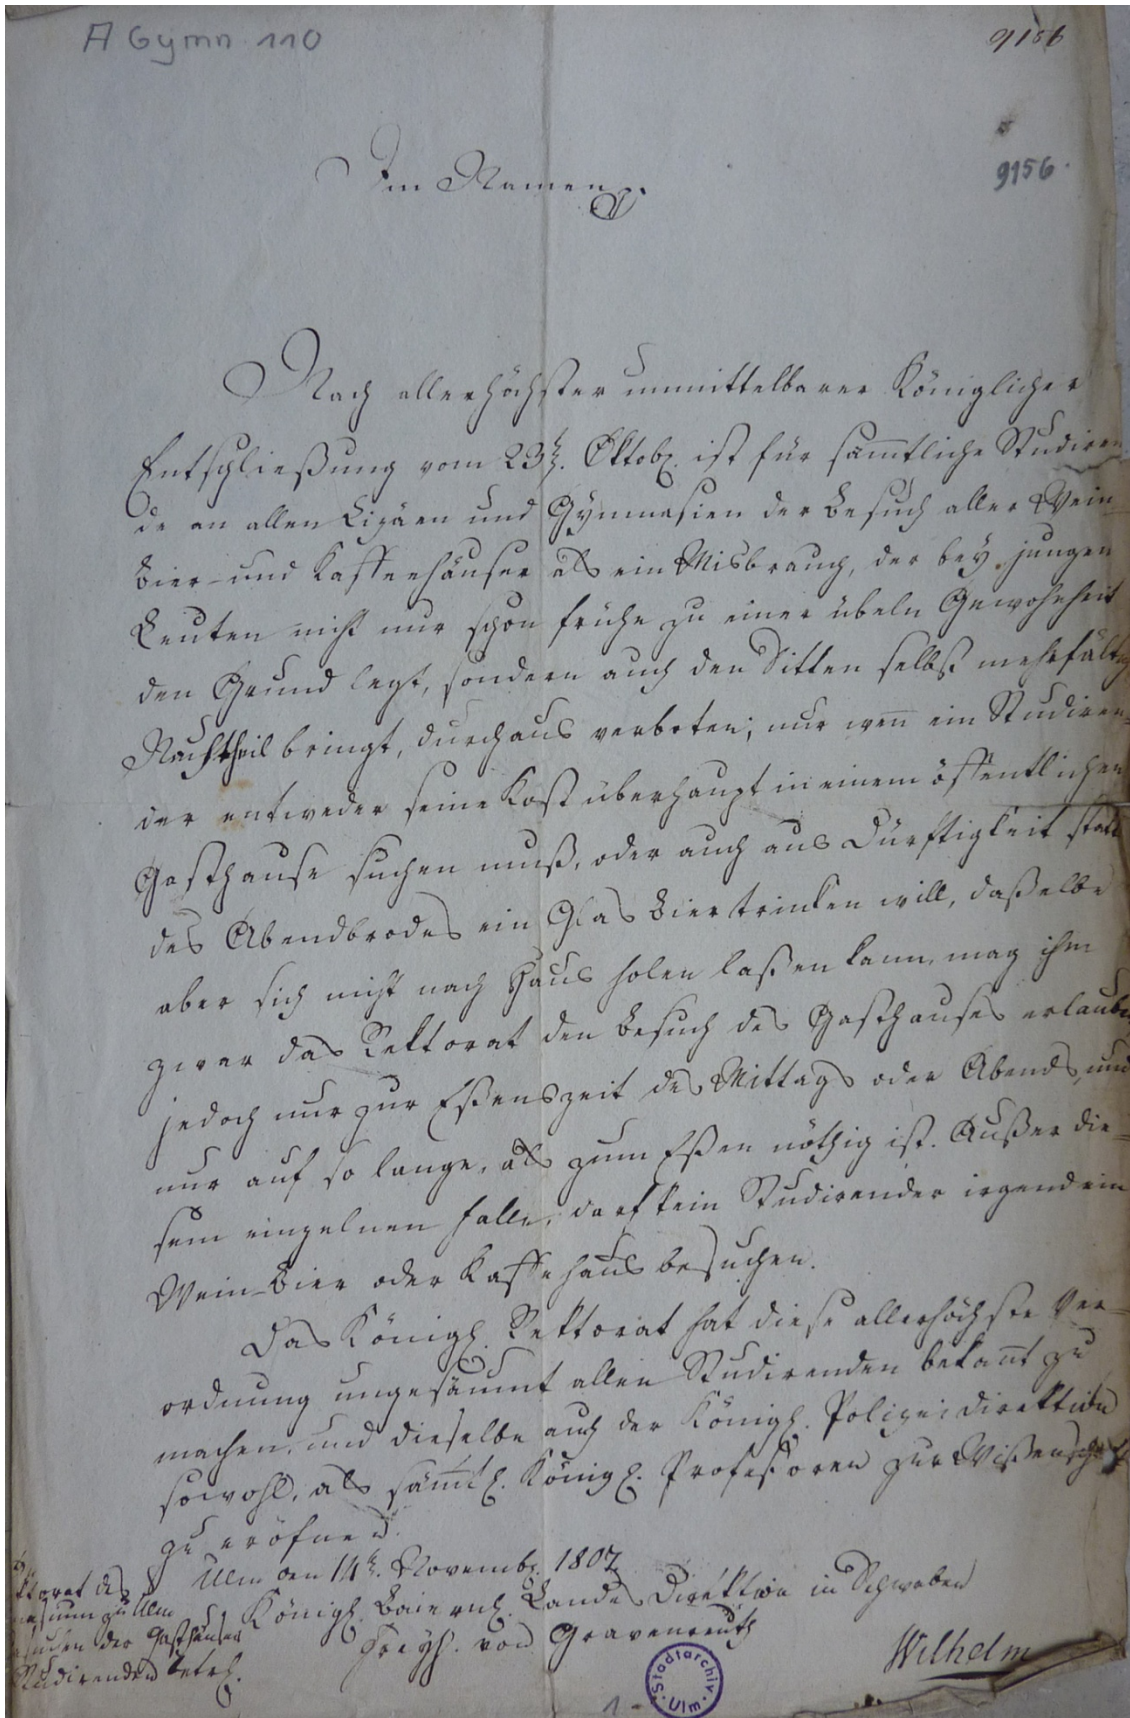 A Gymn. 110
9156
9156.
Im Namen
Nach allerhöchster unmittelbarer Königlicher
Entschließung vom 23t. Oktob. ist für sämtliche Studiren
de an allen Lizäen und Gÿmnasien der Besuch aller Wein-
Bier- und Kaffeehäuser als ein Misbrauch, der beÿ jungen
Leuten nicht nur schon frühe zu einer übeln Gewohnheit
den Grund legt, sondern auch den Sitten selbst mehrfältig
Nachtheil bringt, durchaus verboten; nur wen̄ ein Studiren=
der entweder seine Kost überhaupt in einem öffentlichen
Gasthause suchen muß, oder auch aus Dürftigkeit statt
des Abendbrodes ein Glas Bier trinken will, daßelbe
aber sich nicht nach Haus holen laßen kann, mag ihm
zwar das Rektorat den Besuch des Gasthauses erlauben
jedoch nur zur Eßenszeit des Mittags oder Abends, und
nur auf so lange, als zum Eßen nöthig ist. Außer die=
sem einzelnen Falle, darf kein Studirender irgend ein
Wein- Bier oder Kaffehaus besuchen.
Das Königl. Rektorat hat diese allerhöchste Ver=
ordnung ungesäumt allen Studirenden bekan̄t zu
machen, und dieselbe auch der Königl. Polizeidirektion
sowohl, als sämtl. Königl. Profeßoren zur Wißenschaft
zu eröfnen.
Ulm den 14t. Novemb. 1807
Königl. Baiersch. Landes Direktion in Schwaben
Freyh. von Gravenreuth
Wilhelm
ktorat des
nasium zu Ulm
esuchen der Gasthäuser
Studirenden betrl.
Stadtarchiv
Ulm
1-